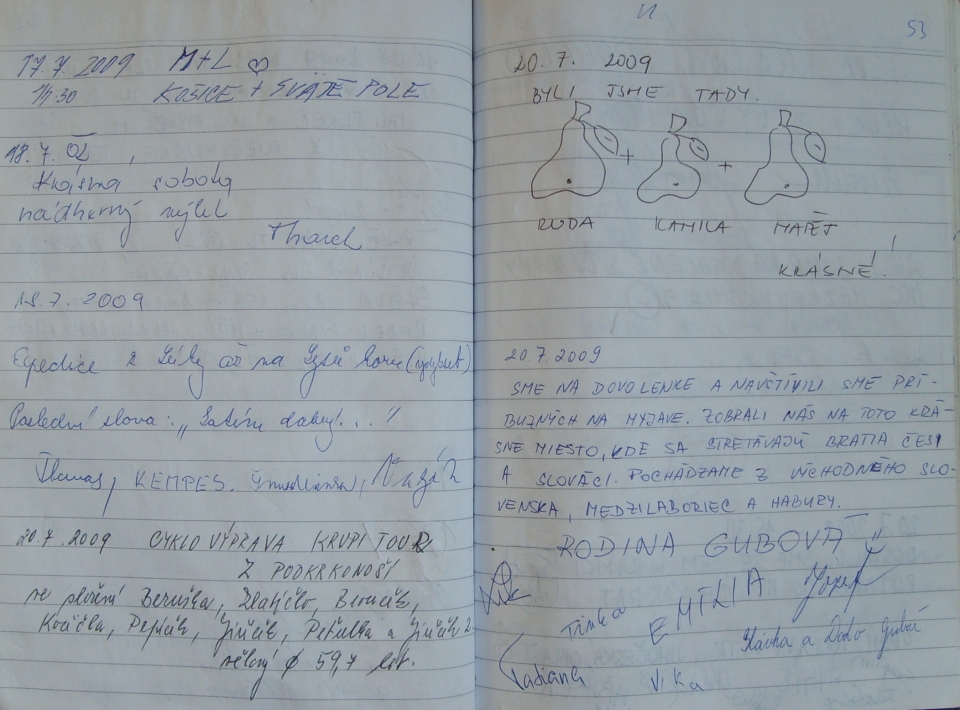 17.7. 2009 M+L ♡
KOŠICE + SVÄTÉ POLE
18.7.
Krásná sobota
nádherný výlet
18.7. 2009
Expedice z až na
Poslední slova: „ "
KEMPES.
20.7.2009 CYKLO VÝPRAVA KRUPI TOUR
Z PODKRKONOŠÍ
ve složení Beruška, Zlatíčko, Broučik,
Kočička, Pepíček, Jiříček, Petulka a Jiříček 2
věkový ϕ 59,7 let.
53
20. 7. 2009
BYLI JSME TADY.
+ +
RUDA KAMILA MATĚJ
KRÁSNÉ!
20.7.2009
SME NA DOVOLENKE A NAVŠTÍVILI SME PRÍ-
BUZNÝCH NA MYJAVE. ZOBRALI NÁS NA TOTO KRÁ-
SNE MIESTO, KDE SA STRETÁVAJÚ BRATIA ČESI
A SLOVÁCI. POCHÁDZAME Z VÝCHODNÉHO SLO-
VENSKA, MEDZILABORIEC A HABURY.
RODINA GUBOVÁ
Timka EMÍLIA Jozef
Slávka a Dodo Gubá
Tatiana Vika